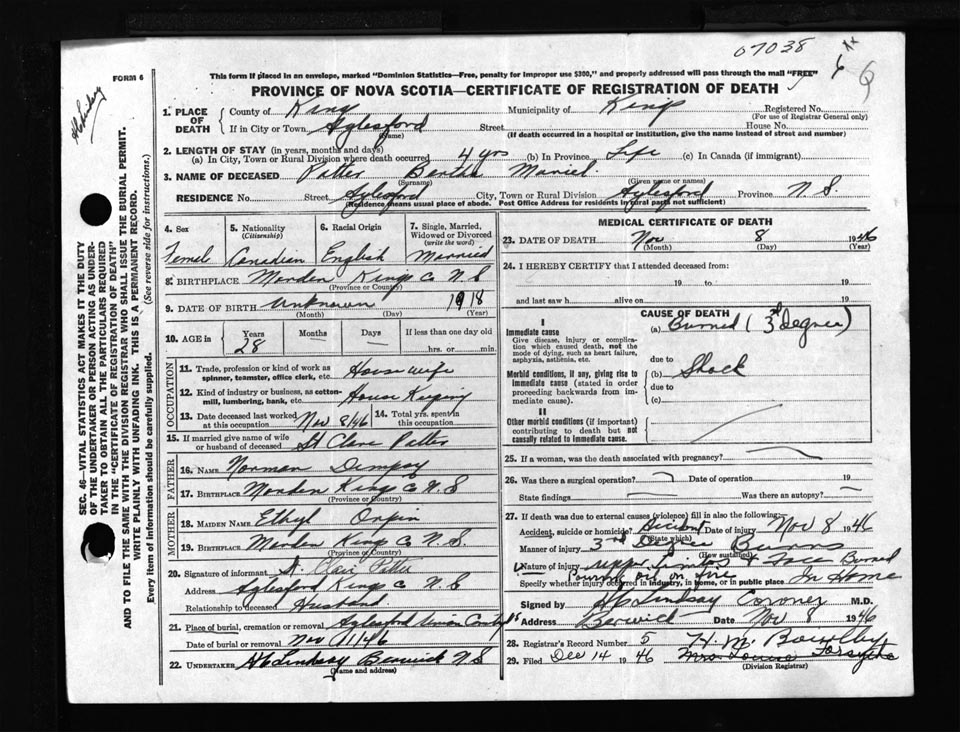 07038
FORM 6
This form if placed in an envelope, marked "Dominion Statistics—Free, penalty for improper use $300," and properly addressed will pass through the mail "FREE"
PROVINCE OF NOVA SCOTIA—CERTIFICATE OF REGISTRATION OF DEATH
1. PLACE OF DEATH
County of King Municipality of Kings Registered No.
(For use of Registrar General only)
If in City or Town Aylesford Street House No.
(Name) (If death occurred in a hospital or institution, give the name instead of street and number)
2. LENGTH OF STAY (in years, months and days)
(a) In City, Town or Rural Division where death occurred 4 yrs (b) In Province Life (c) In Canada (if immigrant)
3. NAME OF DECEASED Potter Bertha Muriel
(Surname) (Given name or names)
RESIDENCE No. Street Aylesford City, Town or Rural Division Aylesford Province N.S.
(Residence means usual place of abode. Post Office Address for residents in rural parts not sufficient)
4. Sex
Femel
5. Nationality
(Citizenship)
Canadian
6. Racial Origin
English
7. Single, Married,
Widowed or Divorced
(write the word)
Married
8. BIRTHPLACE Morden Kings Co N.S
(Province or Country)
9. DATE OF BIRTH Unknown 1918
(Month) (Day) (Year)
10. AGE in
Years Months Days If less than one day old
28 hrs. or min.
OCCUPATION
11. Trade, profession or kind of work as
spinner, teamster, office clerk, etc. House wife
12. Kind of industry or business, as cotton-
mill, lumbering, bank, etc. House Keeping
13. Date deceased last worked
at this occupation Nov 8/46
14. Total yrs. spent in
this occupation
15. If married give name of wife
or husband of deceased St Clare Potter
FATHER
16. NAME Norman Dempsy
17. BIRTHPLACE Morden King Co N.S
(Province or Country)
MOTHER
18. MAIDEN NAME Ethyl Orpin
19. BIRTHPLACE Morden King Co N.S.
(Province or Country)
20. Signature of informant St. Clair Potter
Address Aylesford Kings Co N.S
Relationship to deceased Husband
21. Place of burial, cremation or removal Aylesford Union
Date of burial or removal Nov 11/46
22. UNDERTAKER H C Lindsay Berwick N S
(Name and address)
MEDICAL CERTIFICATE OF DEATH
23. DATE OF DEATH Nov 8 1946
(Month) (Day) (Year)
24. I HEREBY CERTIFY that I attended deceased from:
19 to 19
and last saw h alive on 19
CAUSE OF DEATH
I
Immediate cause
Give disease, injury or complica-
tion which caused death, not the
mode of dying, such as heart failure,
asphyxia, asthenia, etc.
(a) Burned (3rd degree)
due to
Morbid conditions, if any, giving rise to
immediate cause (stated in order
proceeding backwards from im-
mediate cause).
(b) Shock
due to
(c)
II
Other morbid conditions (if important)
contributing to death but not
causally related to immediate cause.
25. If a woman, was the death associated with pregnancy?
26. Was there a surgical operation? Date of operation 19
State findings Was there an autopsy?
27. If death was due to external causes (violence) fill in also the following:
Accident, suicide or homicide? Accident Date of injury Nov 8 1946
(State which)
Manner of injury 3rd Degree Burns
(How sustained)
Nature of injury Upper Limbs & Face Burned
Pouring oil on fire
Specify whether injury occurred in industry, in home, or in public place In Home
Signed by H C Lindsay Coroner M.D.
Address Berwick Date Nov 8 1946
28. Registrar's Record Number 5 H. M.
29. Filed Dec 14 1946 Mrs Louise Forsythe
(Division Registrar)
H C Lindsay
SEC. 46—VITAL STATISTICS ACT MAKES IT THE DUTY
OF THE UNDERTAKER OR PERSON ACTING AS UNDER-
TAKER TO OBTAIN ALL THE PARTICULARS REQUIRED
IN THE "CERTIFICATE OF REGISTRATION OF DEATH"
AND TO FILE THE SAME WITH THE DIVISION REGISTRAR WHO SHALL ISSUE THE BURIAL PERMIT.
WRITE PLAINLY WITH UNFADING INK. THIS IS A PERMANENT RECORD.
Every item of information should be carefully supplied. (See reverse side for instructions.)